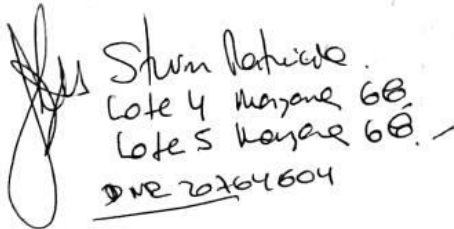 Sturn Patricia.
Lote 4 Manzana 68
Lote 5 Manzana 68.-
DNI 20764604